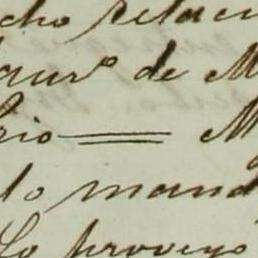 cho relaci
aurº de M
rio = M
lo mand
Lo proveyo